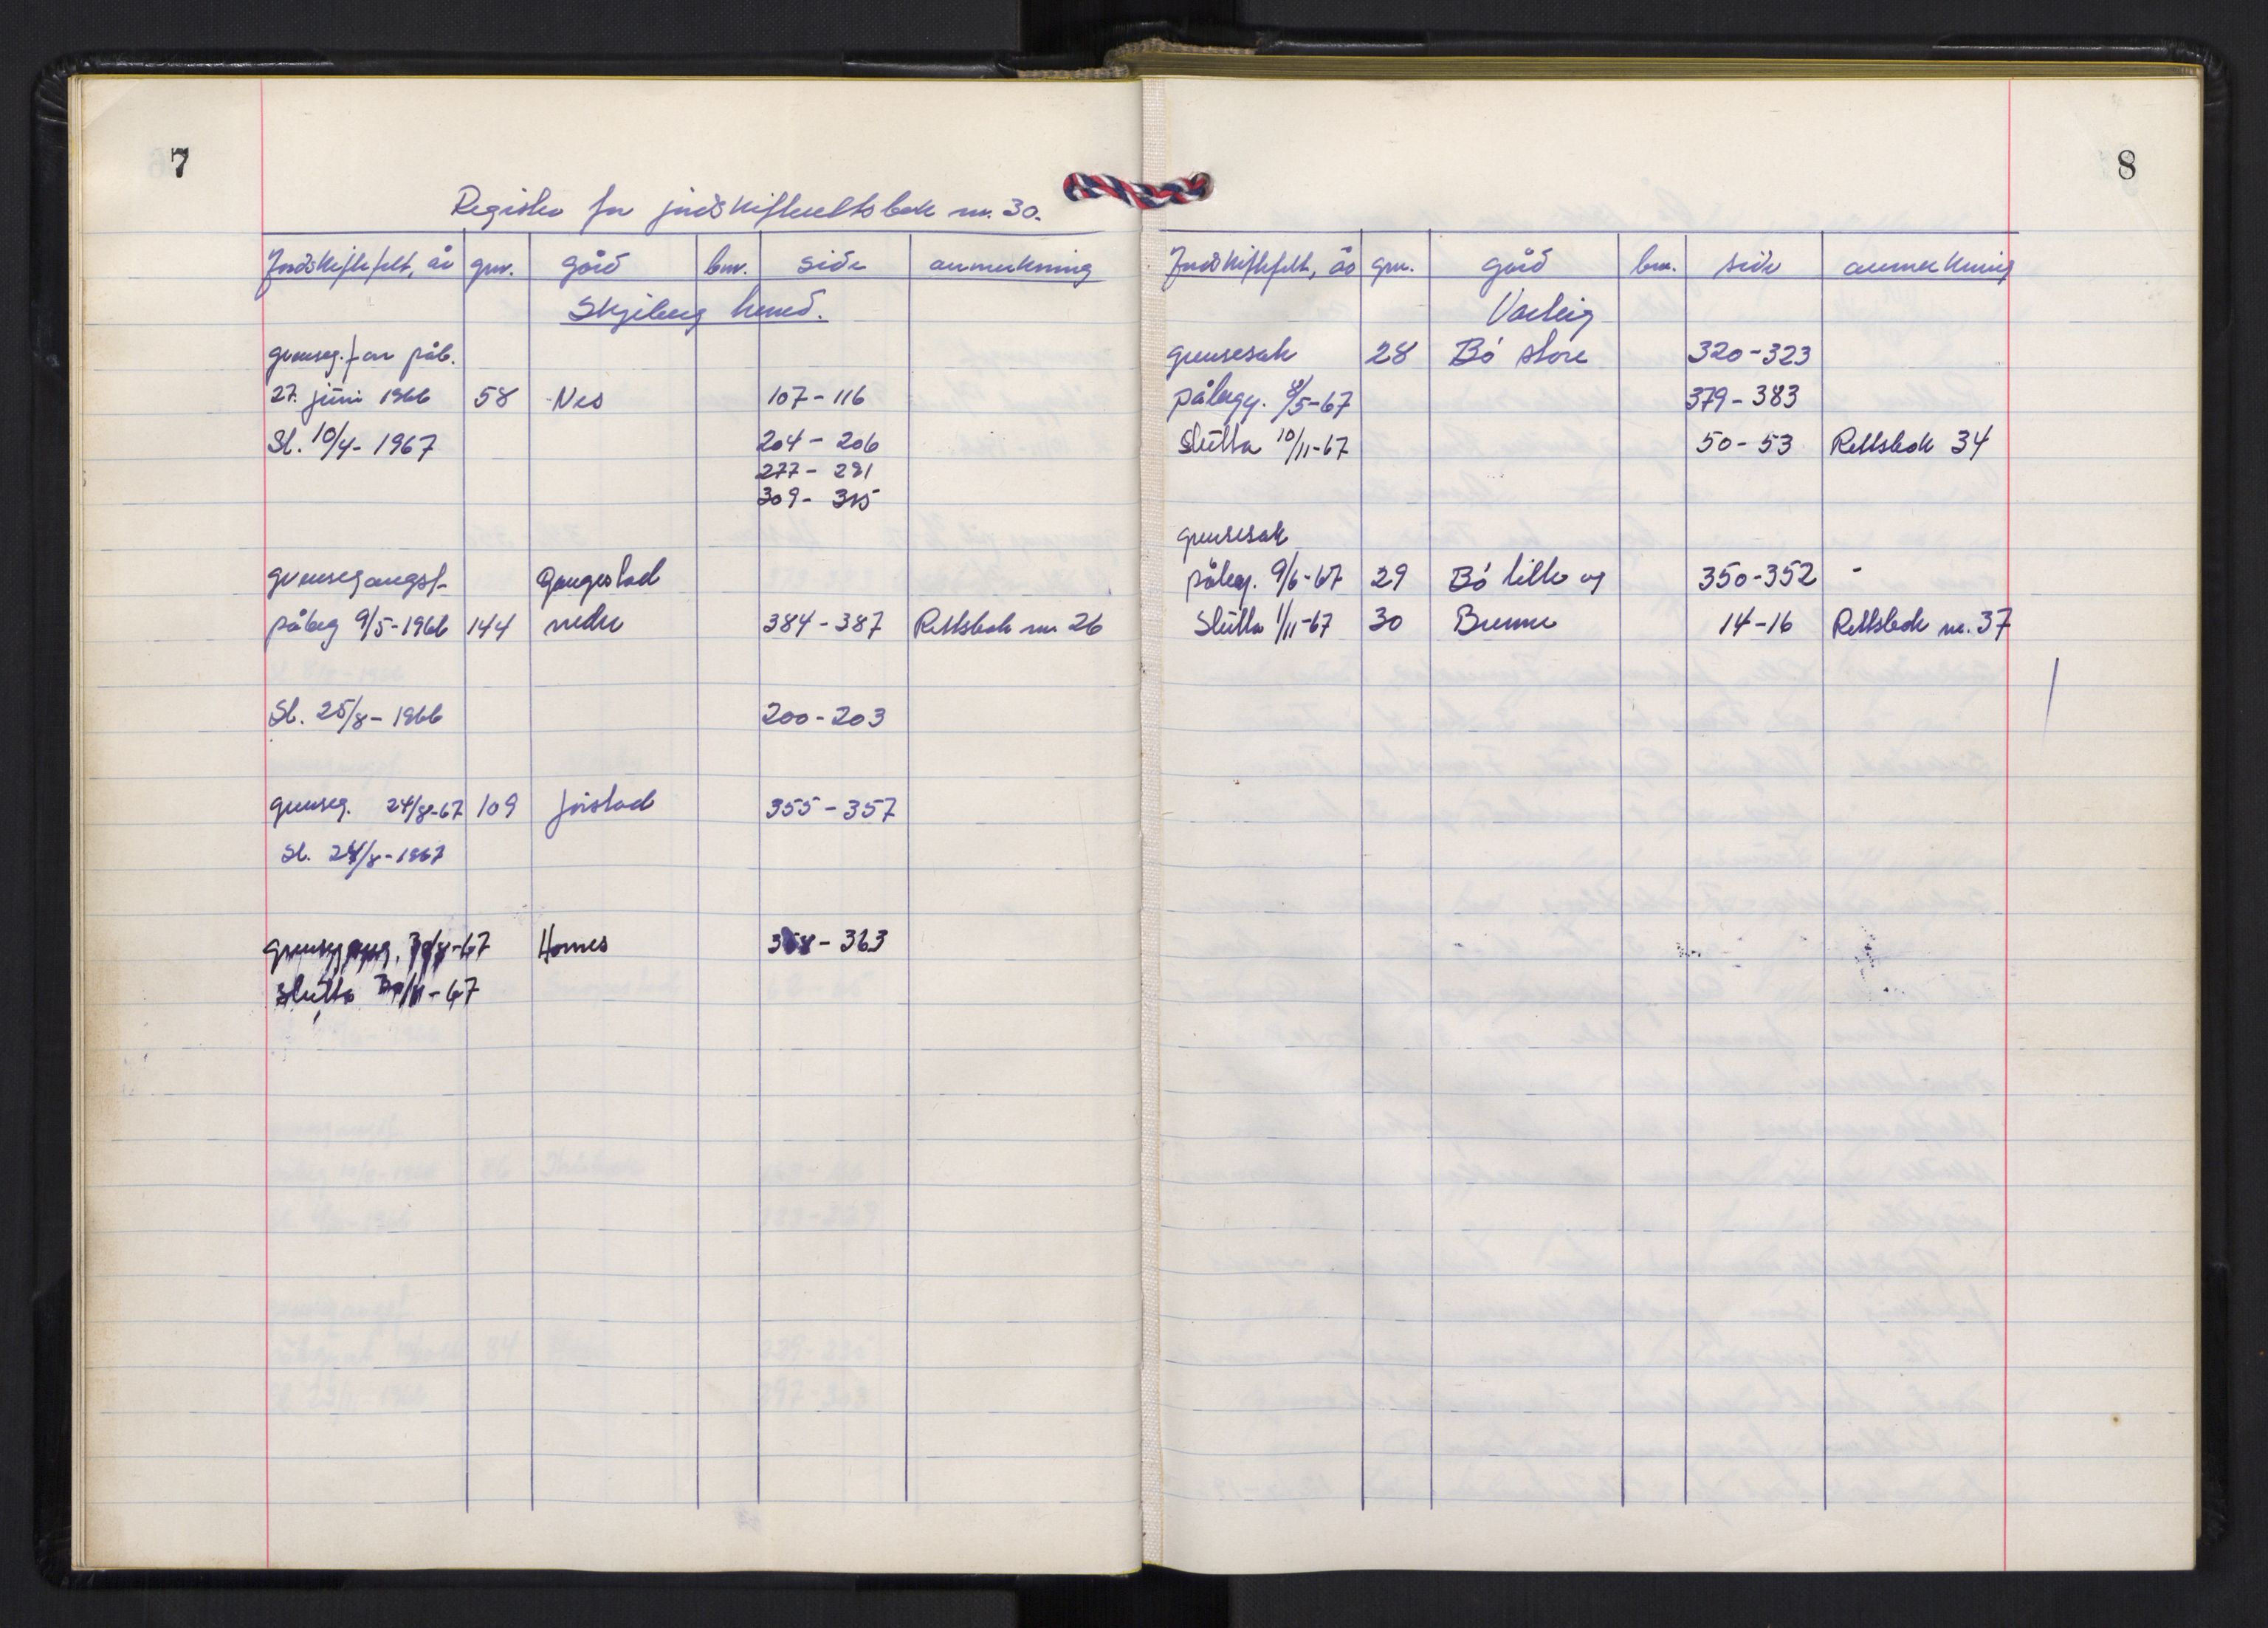 7
Register for jordskifterettsbok nr. 30.
Jordskiftefelt, år gnr. gård bnr. side anmerkning
Skjeberg herred.
grenseg. for påb.
27. juni 1966 58 Nes 107-116
Sl. 10/4-1967 204-206
277-281
309-315
grensegangsf. Gaugestad
påbeg 9/5-1966 144 nedre 384-387 Rettsbok nr. 26
Sl. 25/8-1966 200-203
grenseg. 24/8-67 109 Jorstad 355-357
Sl. 24/8-1967
grensegang. 30/8-67 Hornes 358-363
slutta 30/11-67
8
Jordskiftefelt, år gnr. gård bnr. side anmerkning
Varteig
grensesak 28 Bø store 320-323
påbegy. 9/5-67 379-383
Slutta 10/11-67 50-53 Rettsbok 34
grensesak
påbeg. 9/6-67 29 Bø lille og 350-352 -
Slutta 1/11-67 30 Brenne 14-16 Rettsbok nr. 37